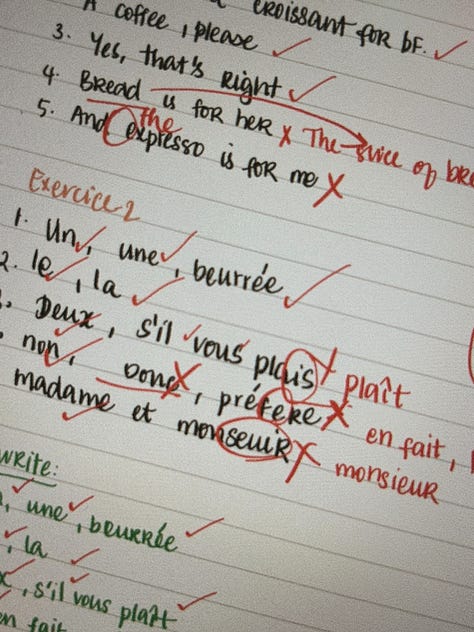 CROISSANT FOR BF.
A coffee, please
3. Yes, that's Right
4. BREAD is FOR HER x The slice of
5. And expresso is FOR me x
the
Exercice 2
1. Un, une, beurrée
2. le, la
Deux, s'il vous plais plaît
non, Donc, préfere x en fait,
madame et monseuir x monsieur
write:
une, beurrée
, la
, s'il vous plaît
en fait